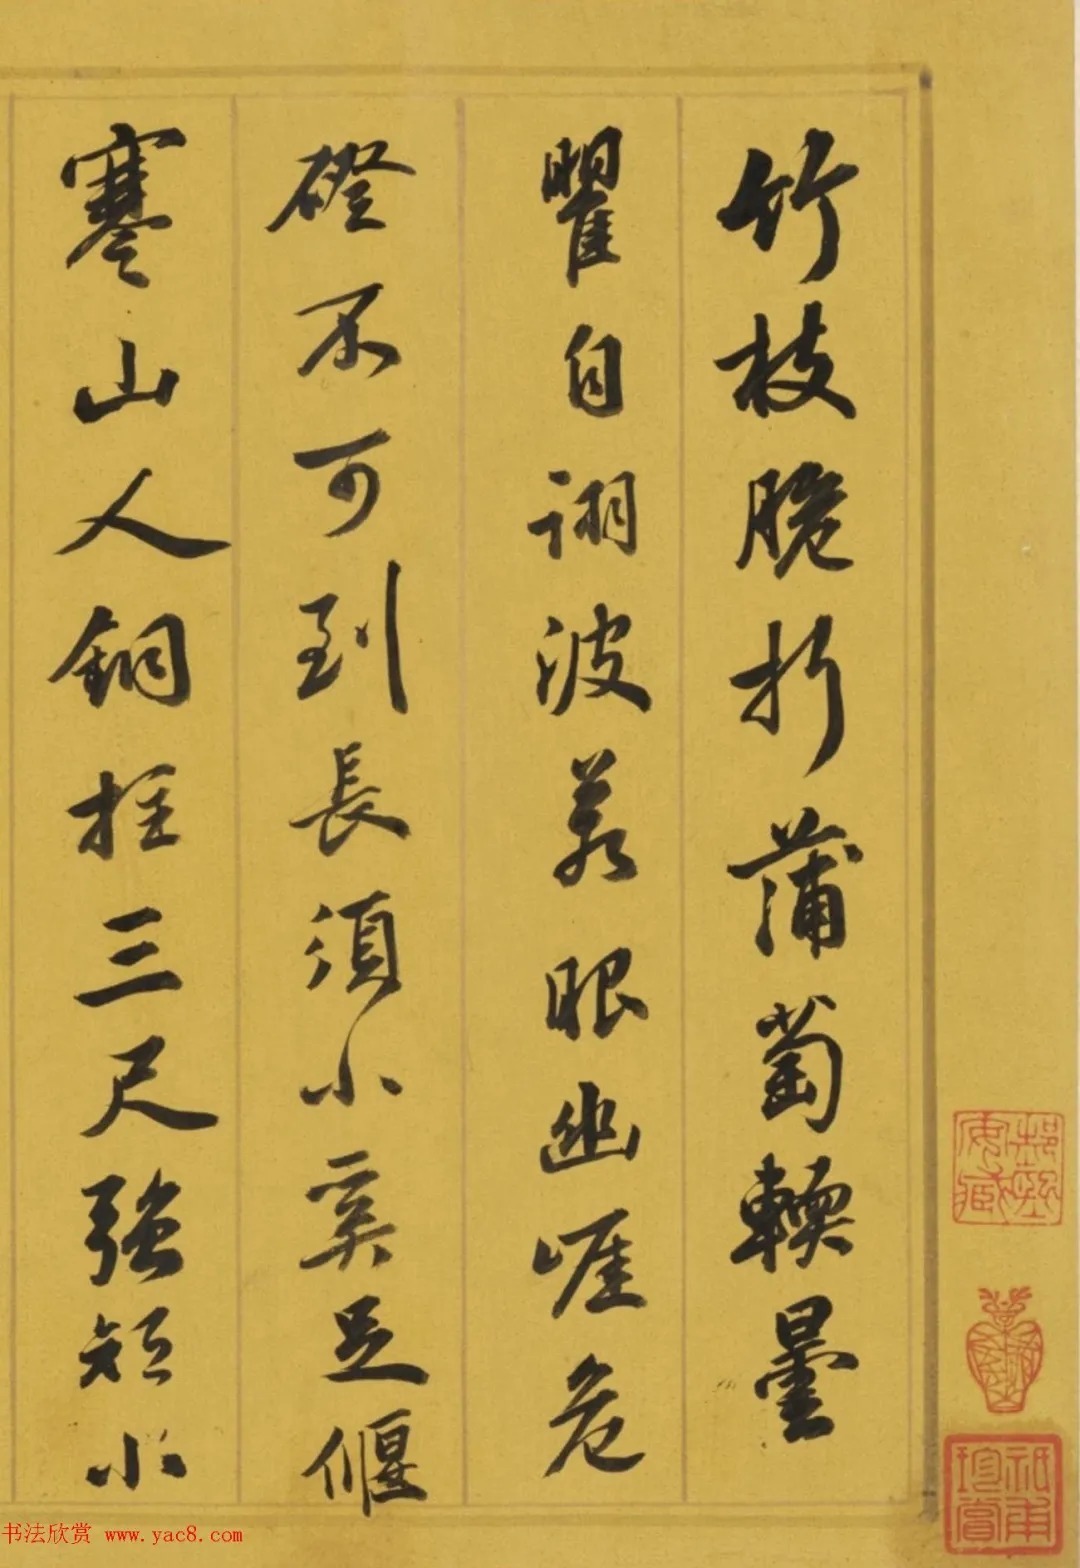 竹枝脆折蒲萄輭曇
瞿自詡波羅眼幽崕危
磴不可到長須小奚足偃
蹇山人銅拄三尺強短小
书法欣赏 www.yac8.com